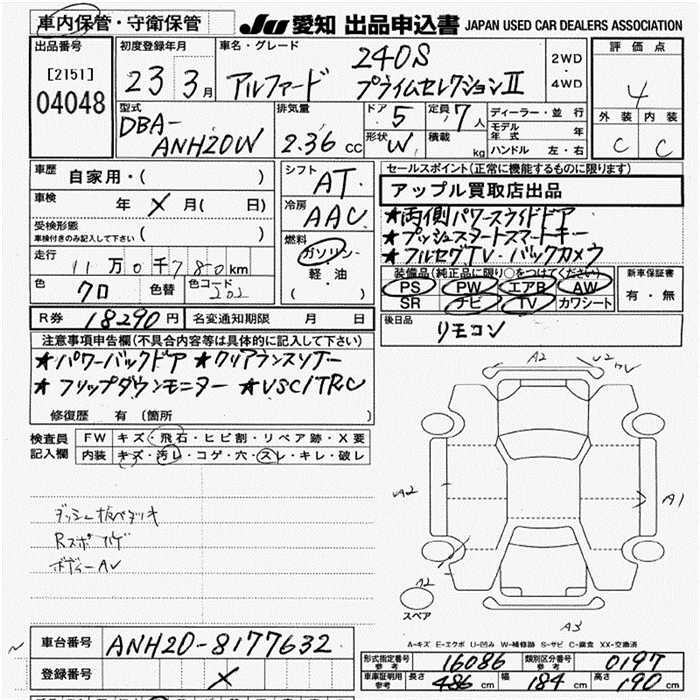 車内保管・守衛保管 JU 愛知 出品申込書 JAPAN USED CAR DEALERS ASSOCIATION
出品番号 初度登録年月 車名・グレード 240S 2WD・4WD 評価点
[2151] 23 3月 アルファード プライムセレクションⅡ 4
04048 型式 排気量 ドア 5 定員 7人 ディーラー・並行 外装 内装
DBA- 形状 W 積載 kg モデル年式 年 C C
ANH20W 2.36 cc ハンドル 左・右
車歴 自家用・( ) シフト AT セールスポイント(正常に機能するものに限り)
車検 年 月( 日) 冷房 AAC アップル買取店出品
受検形態 ( ) ★両側パワースライドドア
車検付きのみ記入して下さい 燃料 ★プッシュスタートスマートキー
走行 11万0千780km ガソリン・軽・油 ★フルセグTV・バックカメラ
( ) 装備品(純正品に限り○をつけてください) 新車保証書
色 クロ 色替 色コード 202 PS PW エアB AW 有・無
SR ナビ TV カワシート
R券 18290円 名変通知期限 月 日 後日品 リモコン
注意事項申告欄(不具合内容等は具体的に記入して下さい)
★パワーバックドア ★クリアランスソナー
★フリップダウンモニター ★VSC/TRC
修復歴 有(箇所 )
検査員記入欄 FW キズ・飛石・ヒビ割・リペア跡・X要
内装 キズ・汚レ・コゲ・穴・スレ・キレ・破レ
A2 U2
A2 A1
ボディーAU
A2
スペア
A3
A-キズ E-エクボ U-凹み W-補修跡 S-サビ C-腐食 XX-交換済
車台番号 ANH20-8177632
形式指定番号 参考 16086 類別区分番号 参考 0197
登録番号
車庫証明用 参考 長さ 486cm 幅 184cm 高さ 190cm